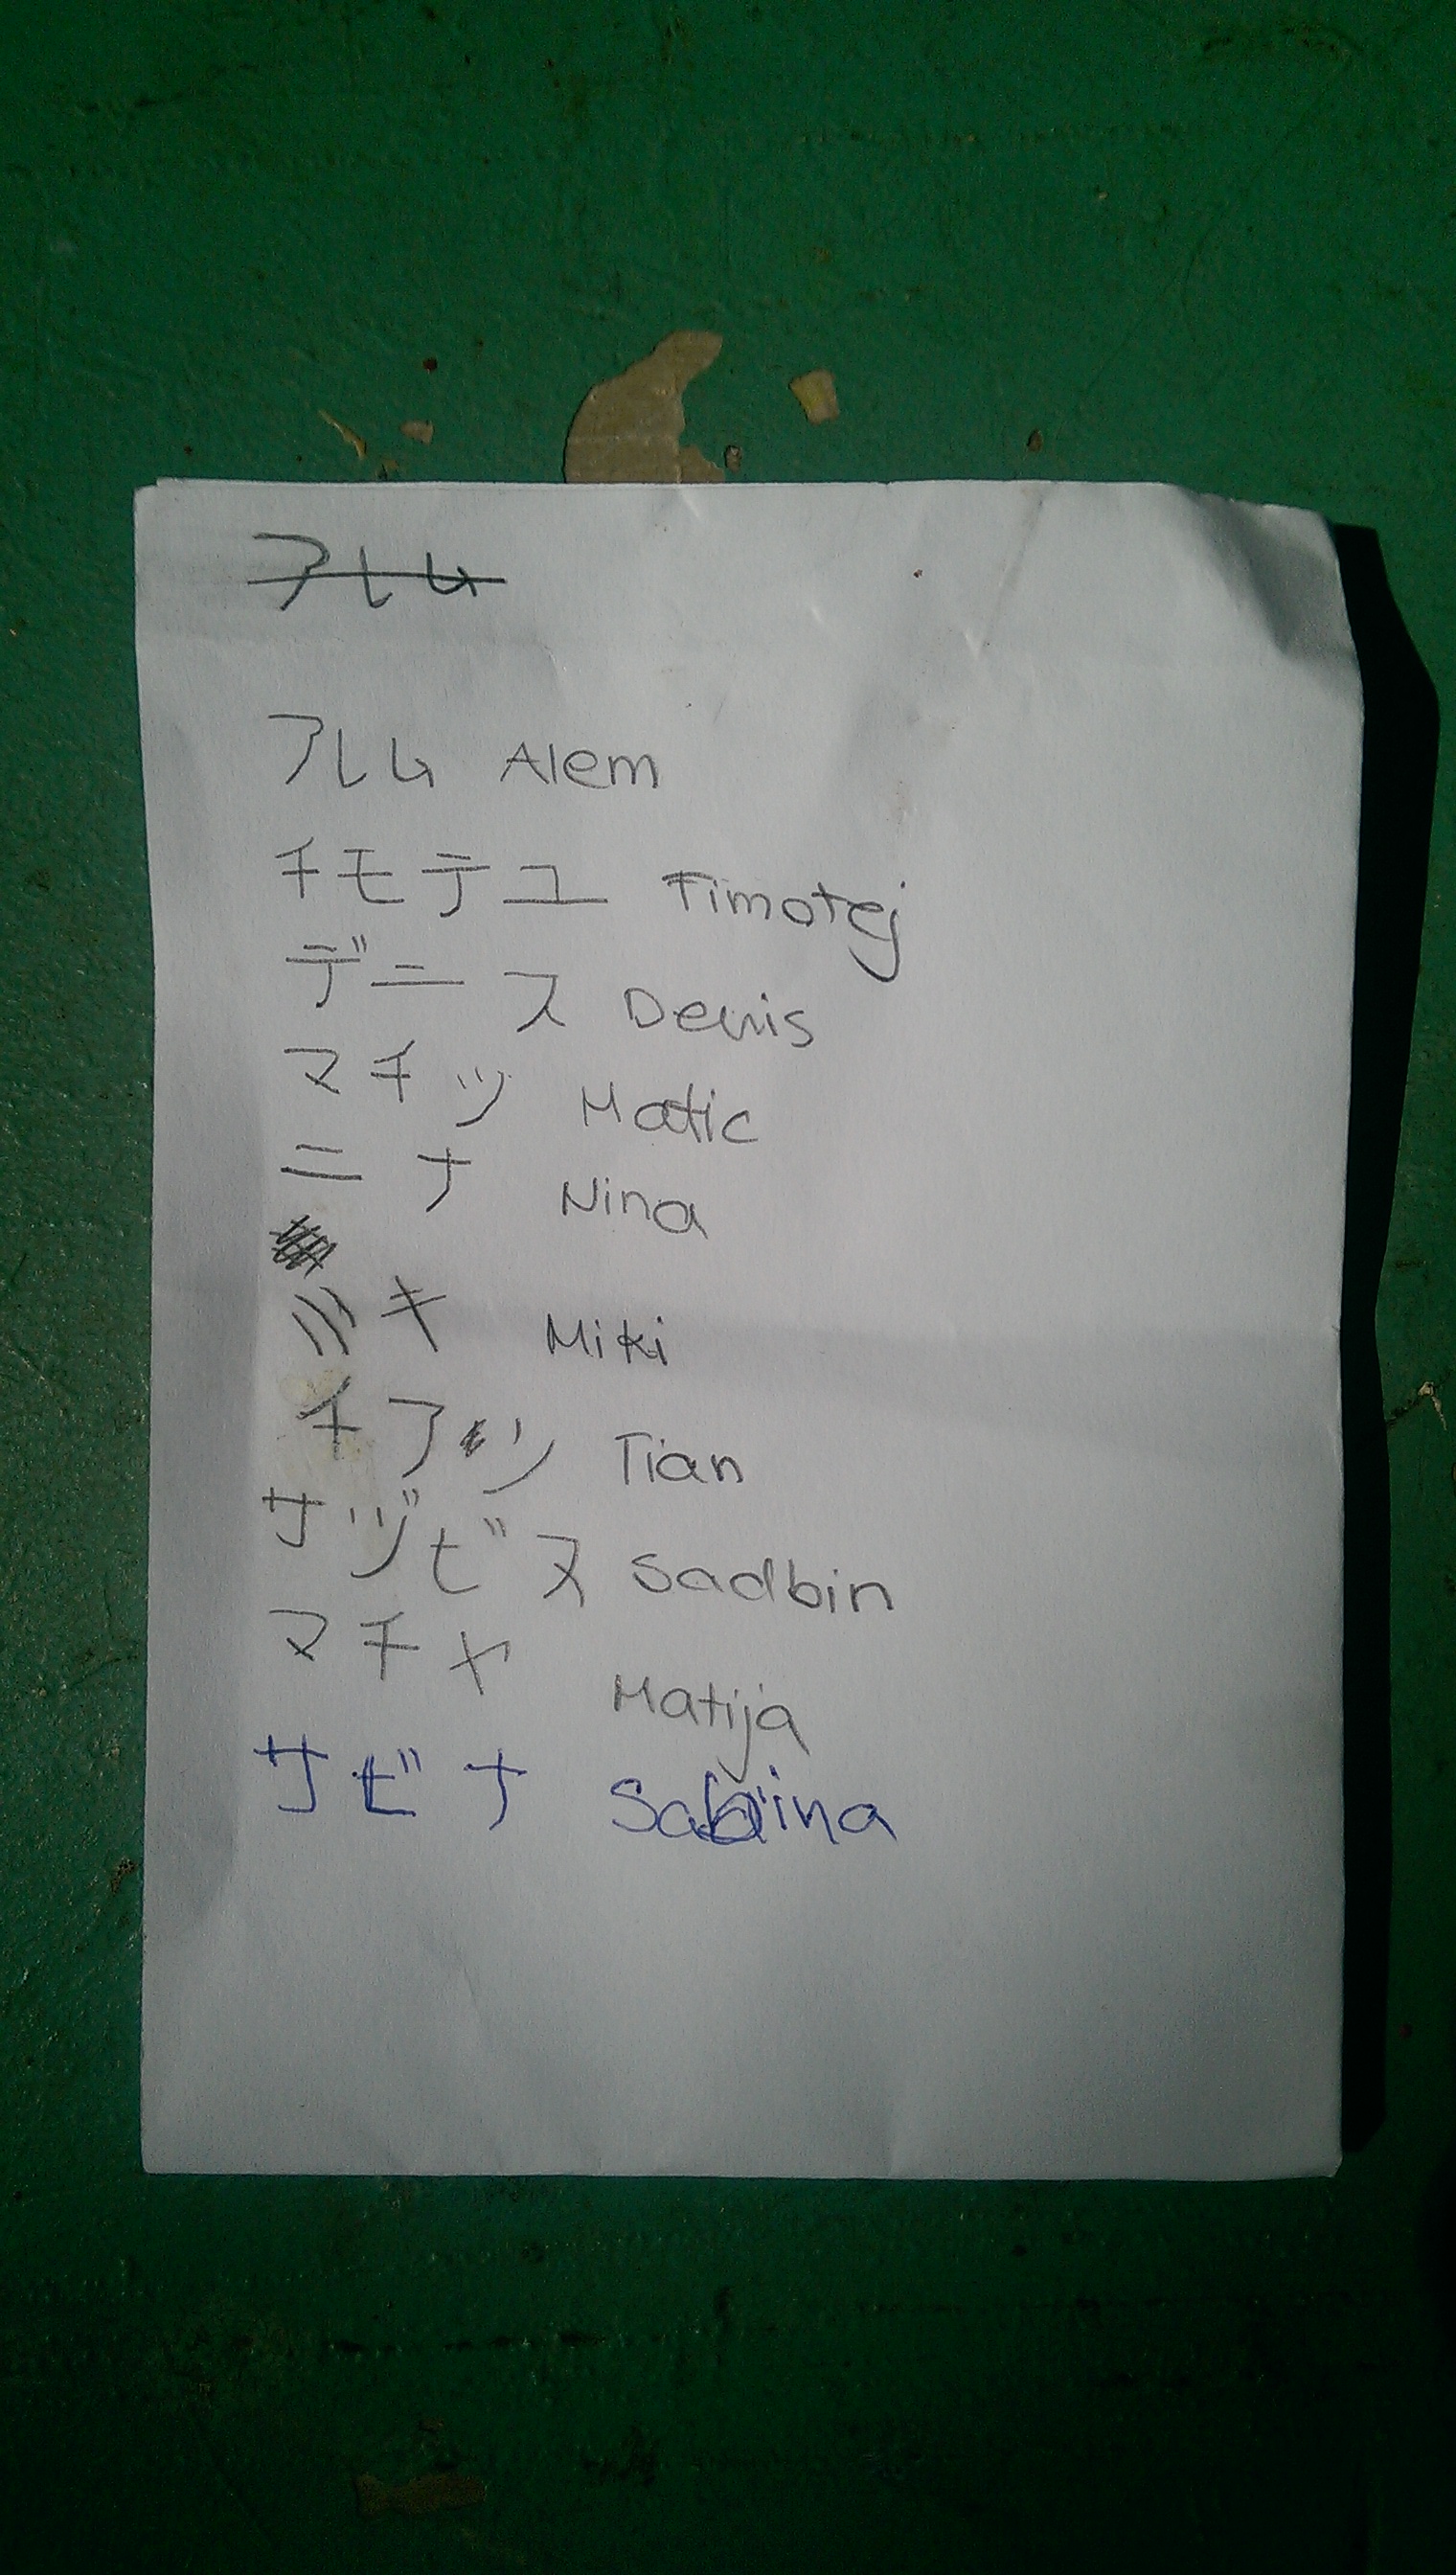 アレム
アレム Alem
チモテユ Timotej
デニス Denis
マチツ Matic
ニナ Nina
ミキ Miki
チアン Tian
サヅビヌ Sadbin
マチヤ Matija
サビナ Sabina